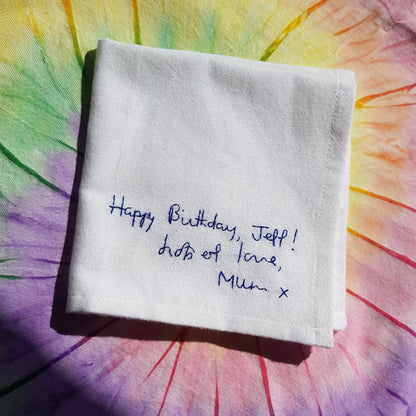 Happy Birthday, Jeff!
Lots of love,
Mum x